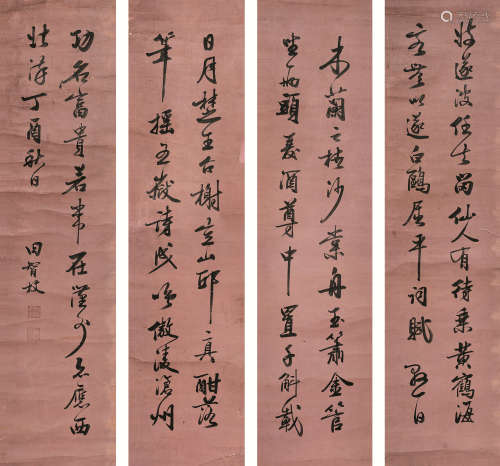 妓遂波任去留仙人有待乘黃鶴海
客無心遂白鷗屈平詞賦懸日
木蘭之枻沙棠舟玉簫金管
坐兩頭美酒尊中置千斛載
日月楚王台榭空山邱興酣落
筆搖五嶽詩成嘯傲凌滄州
功名富貴若常在漢水亦應西
北流丁酉秋日
田智枚